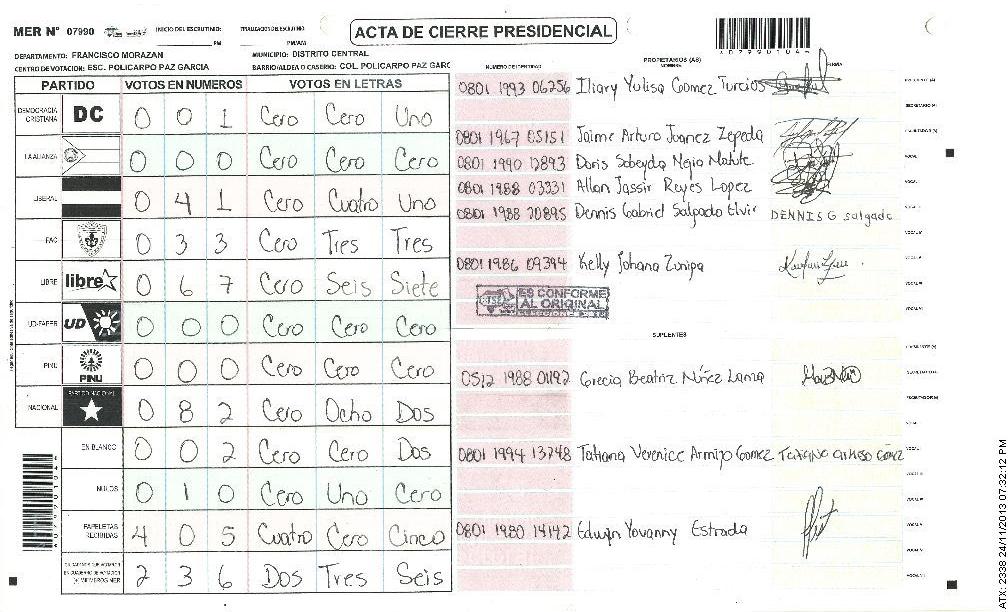 MER Nº 07990
INICIO DEL ESCRUTINIO: PM
FINALIZACION DEL ESCRUTINIO: PM/AM
ACTA DE CIERRE PRESIDENCIAL
DEPARTAMENTO: FRANCISCO MORAZAN
MUNICIPIO: DISTRITO CENTRAL
CENTRO DE VOTACION: ESC. POLICARPO PAZ GARCIA
BARRIO/ALDEA O CASERIO: COL. POLICARPO PAZ GARC
PARTIDO VOTOS EN NUMEROS VOTOS EN LETRAS
DEMOCRACIA CRISTIANA DC 0 0 1 Cero Cero Uno
LA ALIANZA 0 0 0 Cero Cero Cero
LIBERAL 0 4 1 Cero Cuatro Uno
FAC 0 3 3 Cero Tres Tres
LIBRE libre 0 6 7 Cero Seis Siete
UD-FAPER UD 0 0 0 Cero Cero Cero
PINU PINU 0 0 0 Cero Cero Cero
NACIONAL PARTIDO NACIONAL 0 8 2 Cero Ocho Dos
EN BLANCO 0 0 2 Cero Cero Dos
NULOS 0 1 0 Cero Uno Cero
PAPELETAS RECIBIDAS 4 0 5 Cuatro Cero Cinco
2 3 6 Dos Tres Seis
NUMERO DE IDENTIDAD PROPIETARIOS (AS) NOMBRE FIRMA
0801 1993 06256 Iliary Yulisa Gomez Turcios
0801 1967 05151 Jaime Arturo Juanez Zepeda
0801 1990 12893 Doris Sobeyda Mejia Matute
0801 1988 03331 Allan Jassir Reyes Lopez
0801 1988 20895 Dennis Gabriel Salgado Elvir DENNIS G salgado
0801 1986 09394 Kelly Johana Zuniga
ES CONFORME
AL ORIGINAL
SUPLENTES
0512 1988 01192 Grecia Beatriz Núñez Lama
0801 1994 13748 Tatiana Verenice Armijo Gomez
0801 1980 14142 Edwin Yovanny Estrada
ATX: 2338 24/11/2013 07:32:12 PM